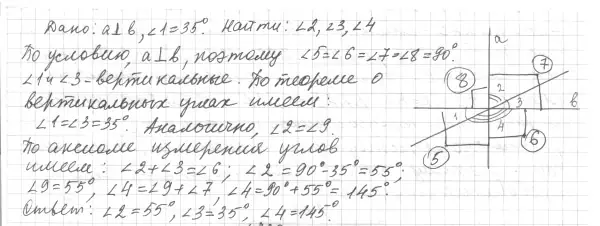 Дано: a⊥b, ∠1=35°. Найти: ∠2, ∠3, ∠4
По условию, a⊥b, поэтому ∠5=∠6=∠7=∠8=90°.
∠1 и ∠3 - вертикальные. По теореме о
вертикальных углах имеем:
∠1=∠3=35°. Аналогично, ∠2=∠9.
По аксиоме измерения углов
имеем: ∠2+∠3=∠6; ∠2=90°-35°=55°;
∠9=55°, ∠4=∠9+∠7, ∠4=90°+55°=145°.
Ответ: ∠2=55°, ∠3=35°, ∠4=145°
a
7
8
2
3
в
1
4
5
6